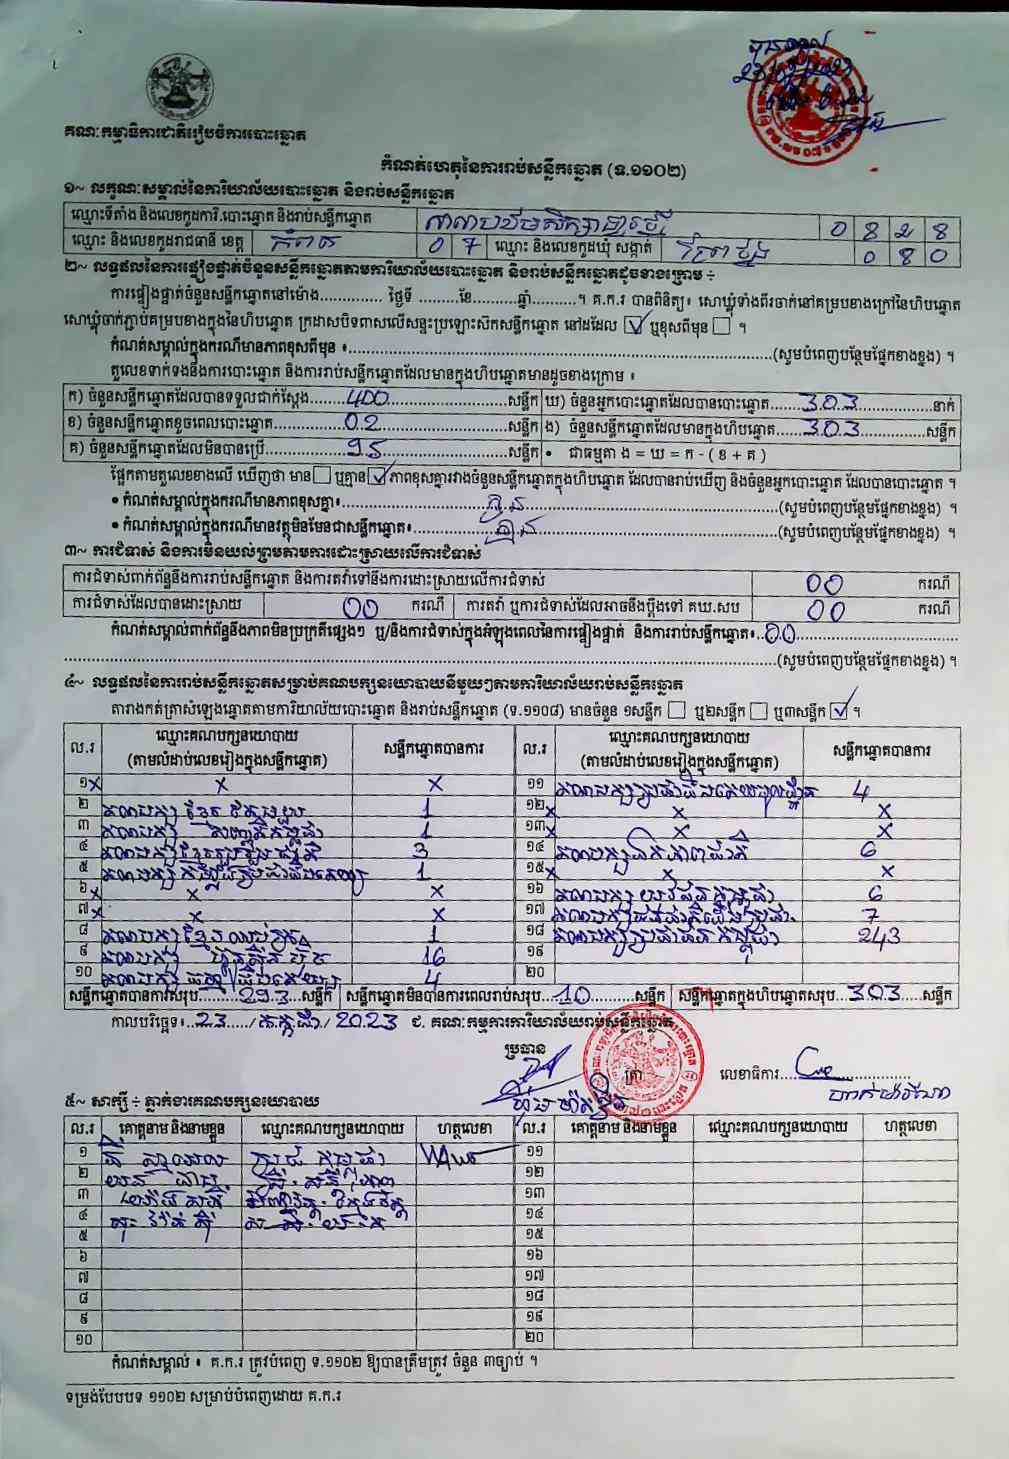 គណៈកម្មាធិការជាតិរៀបចំការបោះឆ្នោត
កំណត់ហេតុនៃការរាប់សន្លឹកឆ្នោត (ទ.១១០២)
១~ លក្ខណៈសម្គាល់នៃការិយាល័យបោះឆ្នោត និងរាប់សន្លឹកឆ្នោត
ឈ្មោះទីតាំង និងលេខកូដការិ.បោះឆ្នោត និងរាប់សន្លឹកឆ្នោត 0 8 2 8
ឈ្មោះ និងលេខកូដរាជធានី ខេត្ត កំពត 0 7 ឈ្មោះ និងលេខកូដឃុំ សង្កាត់ 0 8 0
២~ លទ្ធផលនៃការផ្ទៀងផ្ទាត់ចំនួនសន្លឹកឆ្នោតតាមការិយាល័យបោះឆ្នោត និងរាប់សន្លឹកឆ្នោតដូចខាងក្រោម ÷
ការផ្ទៀងផ្ទាត់ចំនួនសន្លឹកឆ្នោតនៅម៉ោង.............. ថ្ងៃទី .........ខែ...........ឆ្នាំ..........។ គ.ក.រ បានពិនិត្យ៖ សោឃ្លុំទាំងពីរចាក់នៅគម្របខាងក្រៅនៃហិបឆ្នោត
សោឃ្លុំចាក់ភ្ជាប់គម្របខាងក្នុងនៃហិបឆ្នោត ក្រដាសបិទពាសលើសន្ទះប្រឡោះស៊កសន្លឹកឆ្នោត នៅដដែល ☑ ឬខុសពីមុន ☐ ។
កំណត់សម្គាល់ក្នុងករណីមានភាពខុសពីមុន ៖..........(សូមបំពេញបន្ថែមផ្នែកខាងខ្នង) ។
តួលេខទាក់ទងនឹងការបោះឆ្នោត និងការរាប់សន្លឹកឆ្នោតដែលមានក្នុងហិបឆ្នោតមានដូចខាងក្រោម ៖
ក) ចំនួនសន្លឹកឆ្នោតដែលបានទទួលជាក់ស្តែង.......400..........សន្លឹក ឃ) ចំនួនអ្នកបោះឆ្នោតដែលបានបោះឆ្នោត.......303..........នាក់
ខ) ចំនួនសន្លឹកឆ្នោតខូចពេលបោះឆ្នោត..........02..........សន្លឹក ង) ចំនួនសន្លឹកឆ្នោតដែលមានក្នុងហិបឆ្នោត......303..........សន្លឹក
គ) ចំនួនសន្លឹកឆ្នោតដែលមិនបានប្រើ..........95..........សន្លឹក • ជាធម្មតា ង = ឃ = ក - ( ខ + គ )
ផ្អែកតាមតួលេខខាងលើ ឃើញថា មាន ☐ ឬគ្មាន ☑ ភាពខុសគ្នារវាងចំនួនសន្លឹកឆ្នោតក្នុងហិបឆ្នោត ដែលបានរាប់ឃើញ និងចំនួនអ្នកបោះឆ្នោត ដែលបានបោះឆ្នោត ។
• កំណត់សម្គាល់ក្នុងករណីមានភាពខុសគ្នា៖..........គ្មាន..........(សូមបំពេញបន្ថែមផ្នែកខាងខ្នង) ។
• កំណត់សម្គាល់ក្នុងករណីមានវត្ថុមិនមែនជាសន្លឹកឆ្នោត៖..........គ្មាន..........(សូមបំពេញបន្ថែមផ្នែកខាងខ្នង) ។
៣~ ការជំទាស់ និងការមិនយល់ព្រមតាមការដោះស្រាយលើការជំទាស់
ការជំទាស់ពាក់ព័ន្ធនឹងការរាប់សន្លឹកឆ្នោត និងការតវ៉ាទៅនឹងការដោះស្រាយលើការជំទាស់ 00 ករណី
ការជំទាស់ដែលបានដោះស្រាយ 00 ករណី ការតវ៉ា ឬការជំទាស់ដែលអាចនឹងប្តឹងទៅ គឃ.សប 00 ករណី
កំណត់សម្គាល់ពាក់ព័ន្ធនឹងភាពមិនប្រក្រតីផ្សេងៗ ឬ/និងការជំទាស់ក្នុងអំឡុងពេលនៃការផ្ទៀងផ្ទាត់ និងការរាប់សន្លឹកឆ្នោត៖..00..........
..........(សូមបំពេញបន្ថែមផ្នែកខាងខ្នង) ។
៤~ លទ្ធផលនៃការរាប់សន្លឹកឆ្នោតសម្រាប់គណបក្សនយោបាយនីមួយៗតាមការិយាល័យរាប់សន្លឹកឆ្នោត
តារាងកត់ត្រាសំឡេងឆ្នោតតាមការិយាល័យបោះឆ្នោត និងរាប់សន្លឹកឆ្នោត (ទ.១១០៨) មានចំនួន ១សន្លឹក ☐ ឬ២សន្លឹក ☐ ឬ៣សន្លឹក ☑ ។
ល.រ ឈ្មោះគណបក្សនយោបាយ (តាមលំដាប់លេខរៀងក្នុងសន្លឹកឆ្នោត) សន្លឹកឆ្នោតបានការ ល.រ ឈ្មោះគណបក្សនយោបាយ (តាមលំដាប់លេខរៀងក្នុងសន្លឹកឆ្នោត) សន្លឹកឆ្នោតបានការ
១ x x x ១១ គណបក្ស 4
២ គណបក្ស ខ្មែរ 1 ១២ x x x
៣ គណបក្ស 1 ១៣ x x x
៤ គណបក្ស ខ្មែរ 3 ១៤ គណបក្ស 6
៥ គណបក្ស 1 ១៥ x x x
៦ x x x ១៦ គណបក្ស 6
៧ x x x ១៧ គណបក្ស 7
៨ គណបក្ស ខ្មែរ 1 ១៨ គណបក្ស ប្រជាជន កម្ពុជា 243
៩ គណបក្ស ហ៊្វុនស៊ីនប៉ិច 16 ១៩
១០ គណបក្ស 4 ២០
សន្លឹកឆ្នោតបានការសរុប.......293......សន្លឹក សន្លឹកឆ្នោតមិនបានការពេលរាប់សរុប...10..........សន្លឹក សន្លឹកឆ្នោតក្នុងហិបឆ្នោតសរុប...303......សន្លឹក
កាលបរិច្ឆេទ៖..23...../កក្កដា/2023 ជ. គណៈកម្មការការិយាល័យរាប់សន្លឹកឆ្នោត
ប្រធាន
ត្រា លេខាធិការ..........
៥~ សាក្សី ÷ ភ្នាក់ងារគណបក្សនយោបាយ
ល.រ គោត្តនាម និងនាមខ្លួន ឈ្មោះគណបក្សនយោបាយ ហត្ថលេខា ល.រ គោត្តនាម និងនាមខ្លួន ឈ្មោះគណបក្សនយោបាយ ហត្ថលេខា
១ ១១
២ ១២
៣ ១៣
៤ ១៤
៥ ១៥
៦ ១៦
៧ ១៧
៨ ១៨
៩ ១៩
១០ ២០
កំណត់សម្គាល់ ៖ គ.ក.រ ត្រូវបំពេញ ទ.១១០២ ឱ្យបានត្រឹមត្រូវ ចំនួន ៣ច្បាប់ ។
ទម្រង់បែបបទ ១១០២ សម្រាប់បំពេញដោយ គ.ក.រ